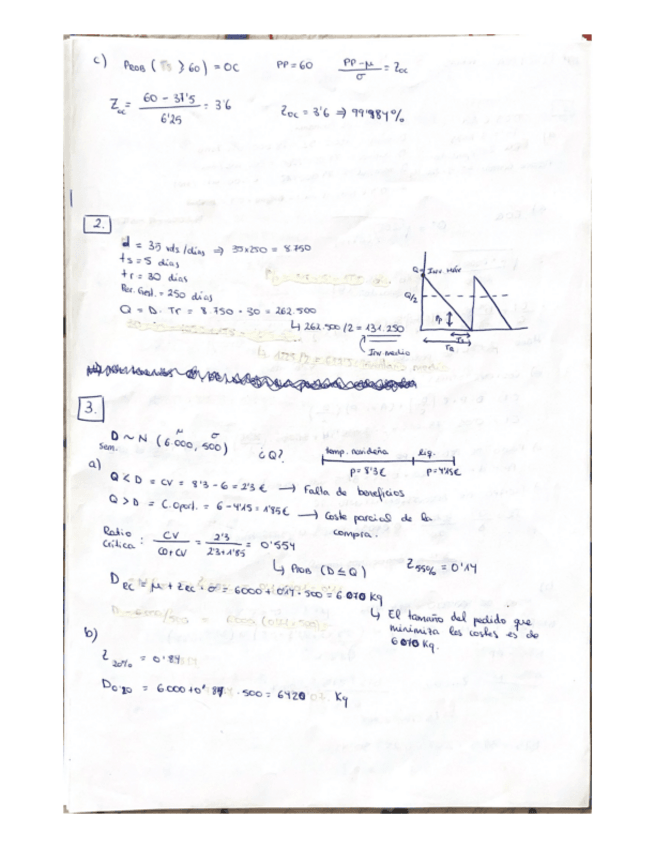 c) PROB ( Ts > 60) = OC PP = 60 PP - μ / σ = Zoc
Zoc = 60 - 37'5 / 6'25 = 3'6 Zoc = 3'6 ⇒ 99'984%
2.
d = 35 uds/días ⇒ 35x250 = 8.750
ts = 5 días
tr = 30 días
Per. Gest. = 250 días
Q = D · Tr = 8.750 · 30 = 262.500
↳ 262.500/2 = 131.250
Inv medio
Q = Inv. Máx
Q/2
Pp
Ts
TR
3.
D ~ N (6.000, 500)
μ σ
sem.
¿Q?
temp. navideña liq.
p = 8'3€ p = 4'15€
a) Q < D = CV = 8'3 - 6 = 2'3€ → Falta de beneficios
Q > D = C. Oport. = 6 - 4'15 = 1'85€ → Coste parcial de la
compra.
Ratio
Crítica : CV / CO+CV = 2'3 / 2'3+1'85 = 0'554
↳ PROB (D ≤ Q) Z55% = 0'14
DRC = μ + ZRC · σ = 6000 + 0'14 · 500 = 6070 Kg
↳ El tamaño del pedido que
minimiza los costes es de
6070 Kg.
b)
Z20% = 0'84
D0'20 = 6000 + 0'84 · 500 = 6420 Kg